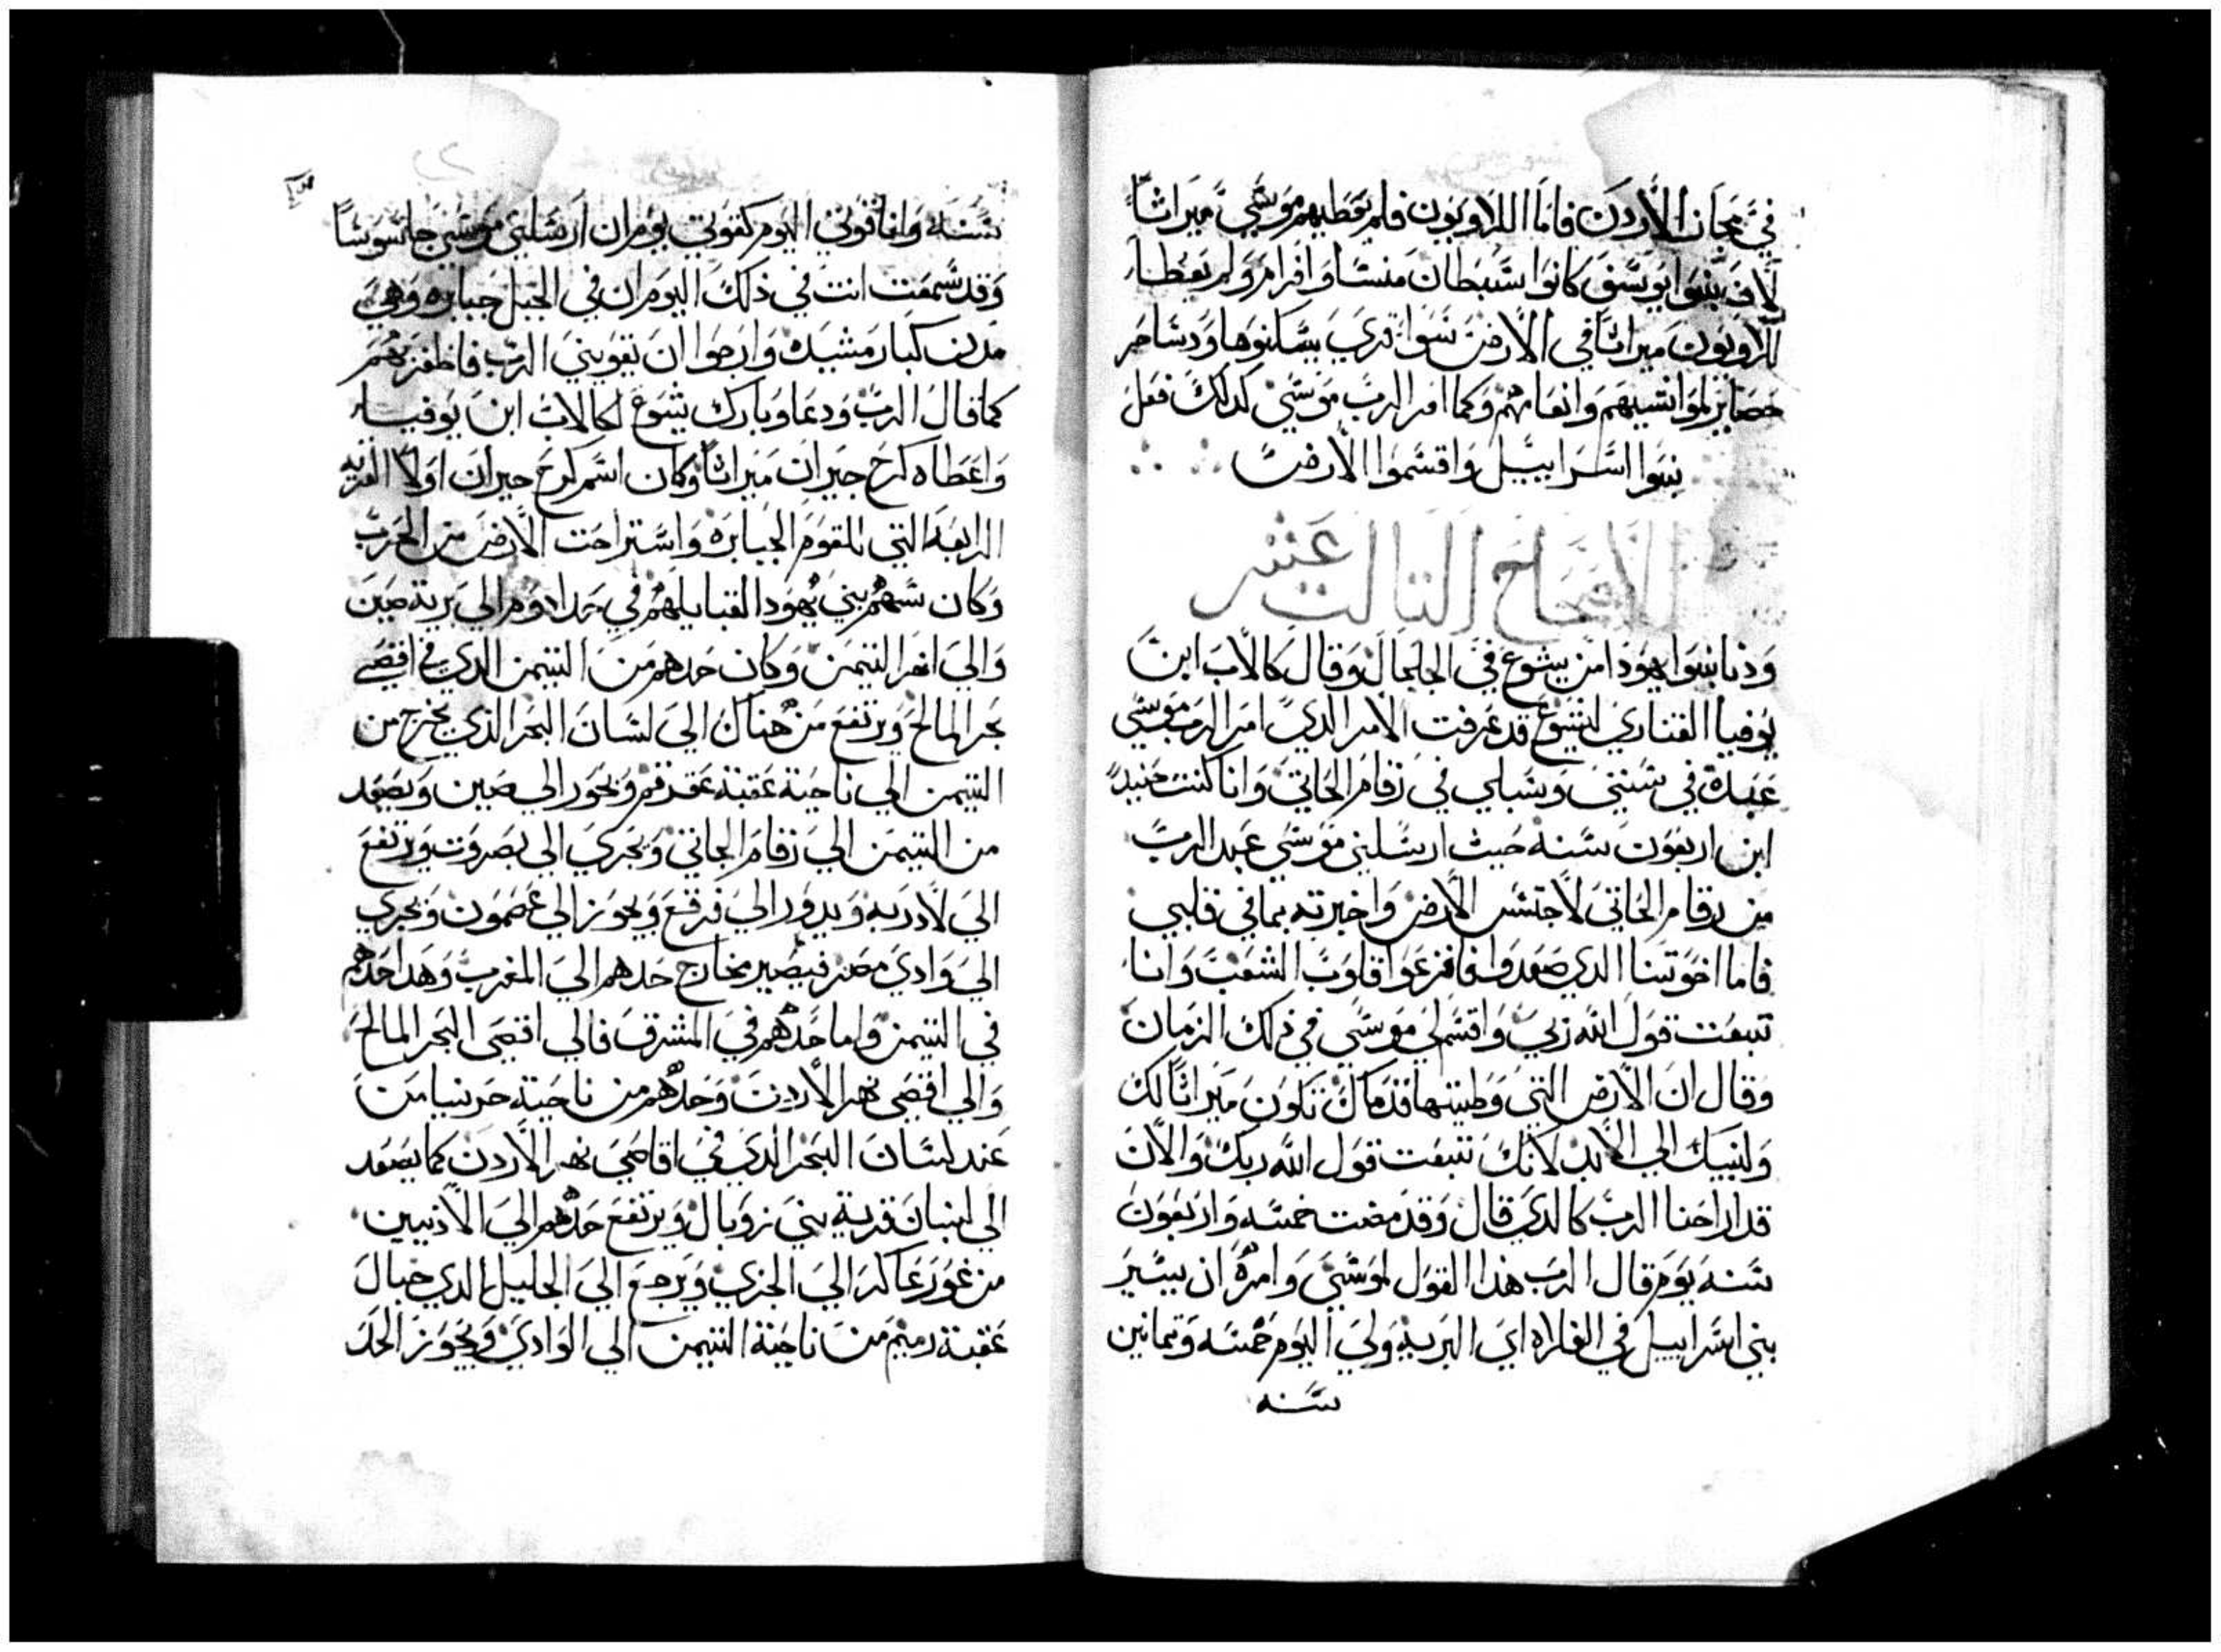 في مجاز الاردن فاما اللاويون فلم يعطيهم موسي ميراثاً
لان بنوا يوسف كانوا سبطان منسا وافرام ولم يعطا
اللاويون ميراثا في الارض سوا قري يسكنوها ودساكر
حصايز لمواشيهم وانعامهم وكما امر الرب موسي كدلك فعل
بنوا اسراييل واقسموا الارض
الاصحاح التالت عشر
ودنا بنوا يهودا من يشوع في الجلجال وقال كالاب ابن
يوفيا القنازي ليشوع قد عرفت الامر الدي امر الرب موسي
عبده في سنتي وسبلي في رقام الجاتي وانا كنت حنيد
ابن اربعون سنه حيث ارسلني موسي عبد الرب
من رقام الجاتي لاجتسس الارض واخبرته بما في قلبي
فاما اخوتنا الدي صعدوا فافزعوا قلوب الشعب وانا
تبعت قول الله ربي واقسم لي موسي في ذلك الزمان
وقال ان الارض التي وطيتها قدماك تكون ميراثا لك
ولبنيك الي الابد لانك تتبعت قول الله ربك والان
قد اراحنا الرب كالدي قال وقد مضت خمسه واربعون
سنه يوم قال الرب هذا القول لموسي وامره ان يسير
بني اسراييل في الفلاه اي البريه ولي اليوم خمسه وتمانين
سنه
سنه وانا قوتي اليوم كقوتي يوم ان ارسلني موسي جاسوسا
وقد سمعت انت في ذلك اليوم ان في الجبل جبابره وهي
مدن كبار مشيده وارجوا ان يقويني الرب فاظفر بهم
كما قال الرب ودعا وبارك يشوع لكالاب ابن يوفيا
واعطاه كرخ جبران ميراثا وكان اسم كرخ جبران اولا القريه
الرابعه التي للقوم الجبابرة واستراحت الارض من الحرب
وكان سهم بني يهودا لقبايلهم في حد ادوم الي برية صين
والي اخر التيمن وكان حدهم من التيمن الدي في اقصي
بحر المالح ويرتفع من هناك الي لسان البحر الذي يخرج من
التيمن الي ناحية عقبة عقرقم ويجوز الي صين ويصعد
من التيمن الي رقام الجاتي ويجري الي بصروت ويرتفع
الي لادربه ويدور الي فرقع ويجوز الي عصمون ويجري
الي وادي مصر فيصير مخارج حدهم الي المغرب وهدا حدهم
في التيمن واما حدهم في المشرق فالي اقصي البحر المالح
والي اقصي نهر الاردن وحدهم من ناحية جرنيا من
عند لسان البحر الذي في اقاصي نهر الاردن كما يصعد
الي لبنان قرية بني زوبال ويرتفع حدهم الي الادنيين
من غور عاكر الي الجزي ويرجع الي الجليل الدي حيال
عقبة دميم من ناحية التيمن الي الوادي ويجوز الحد